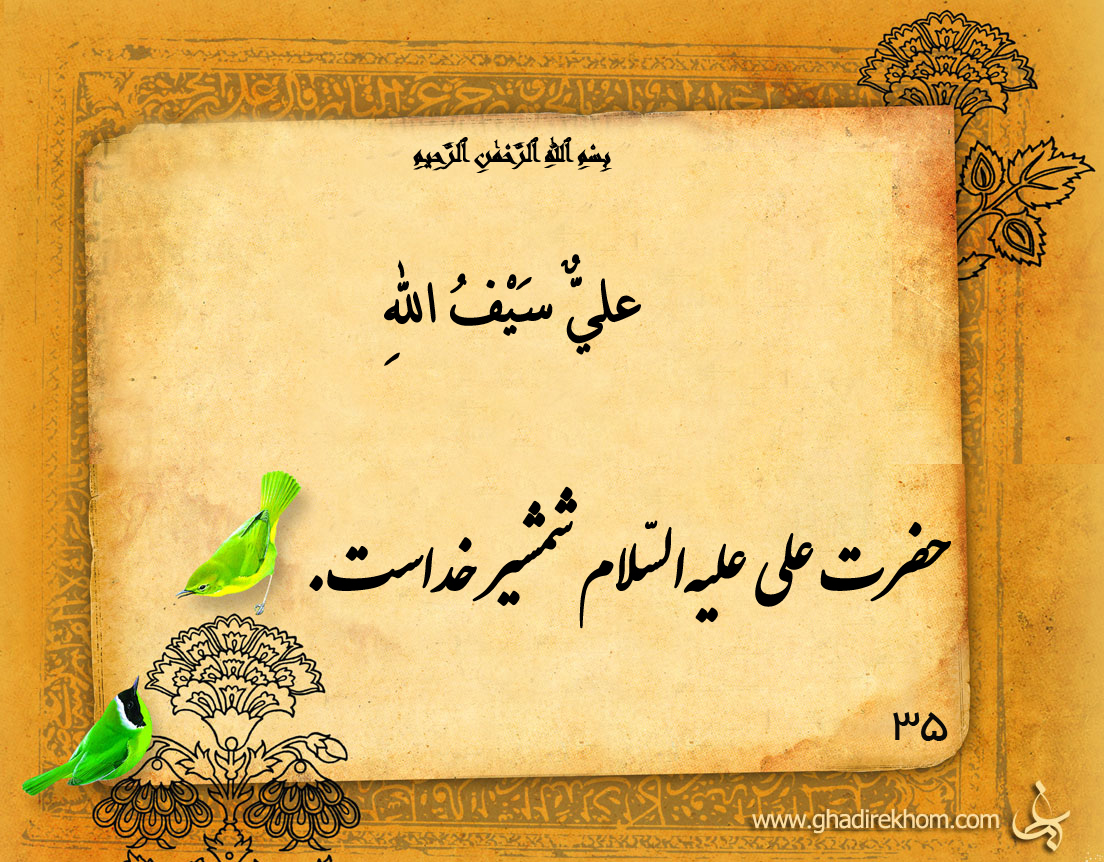 بِسْمِ ٱللَّهِ ٱلرَّحْمَٰنِ ٱلرَّحِيمِ
عليٌّ سَيْفُ اللهِ
حضرت علی علیه السّلام شمشیر خداست.
۳۵
www.ghadirekhom.com